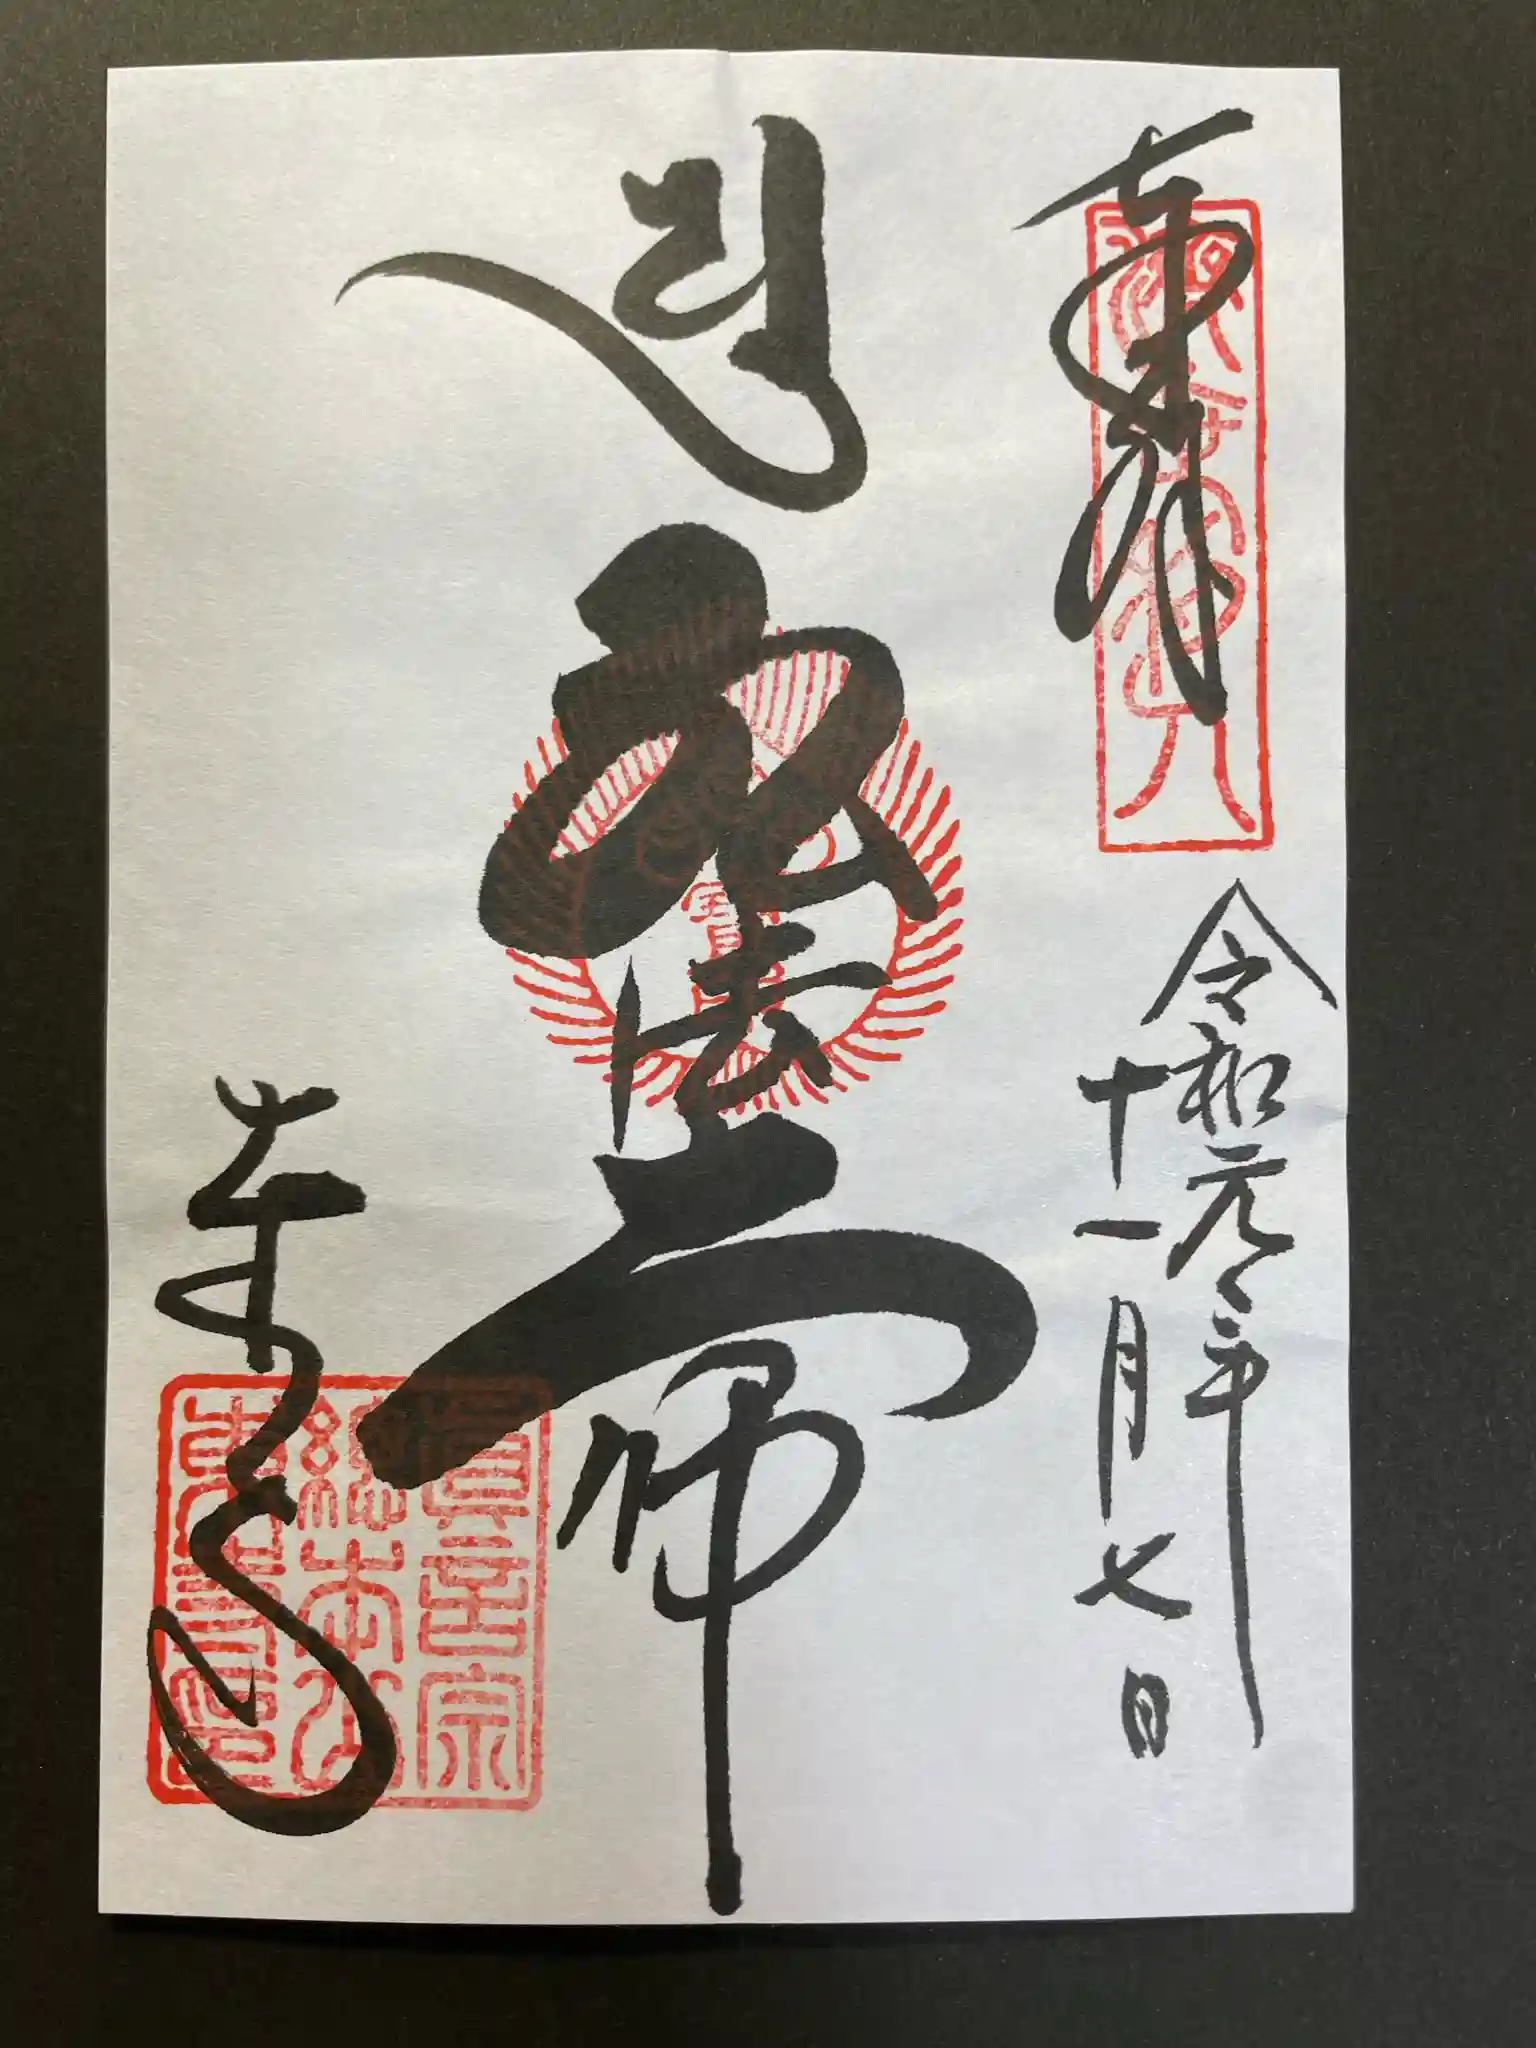 奉拝
令和元年
十一月七日
弘法大師
東寺
眞言宗
總本山
東寺印